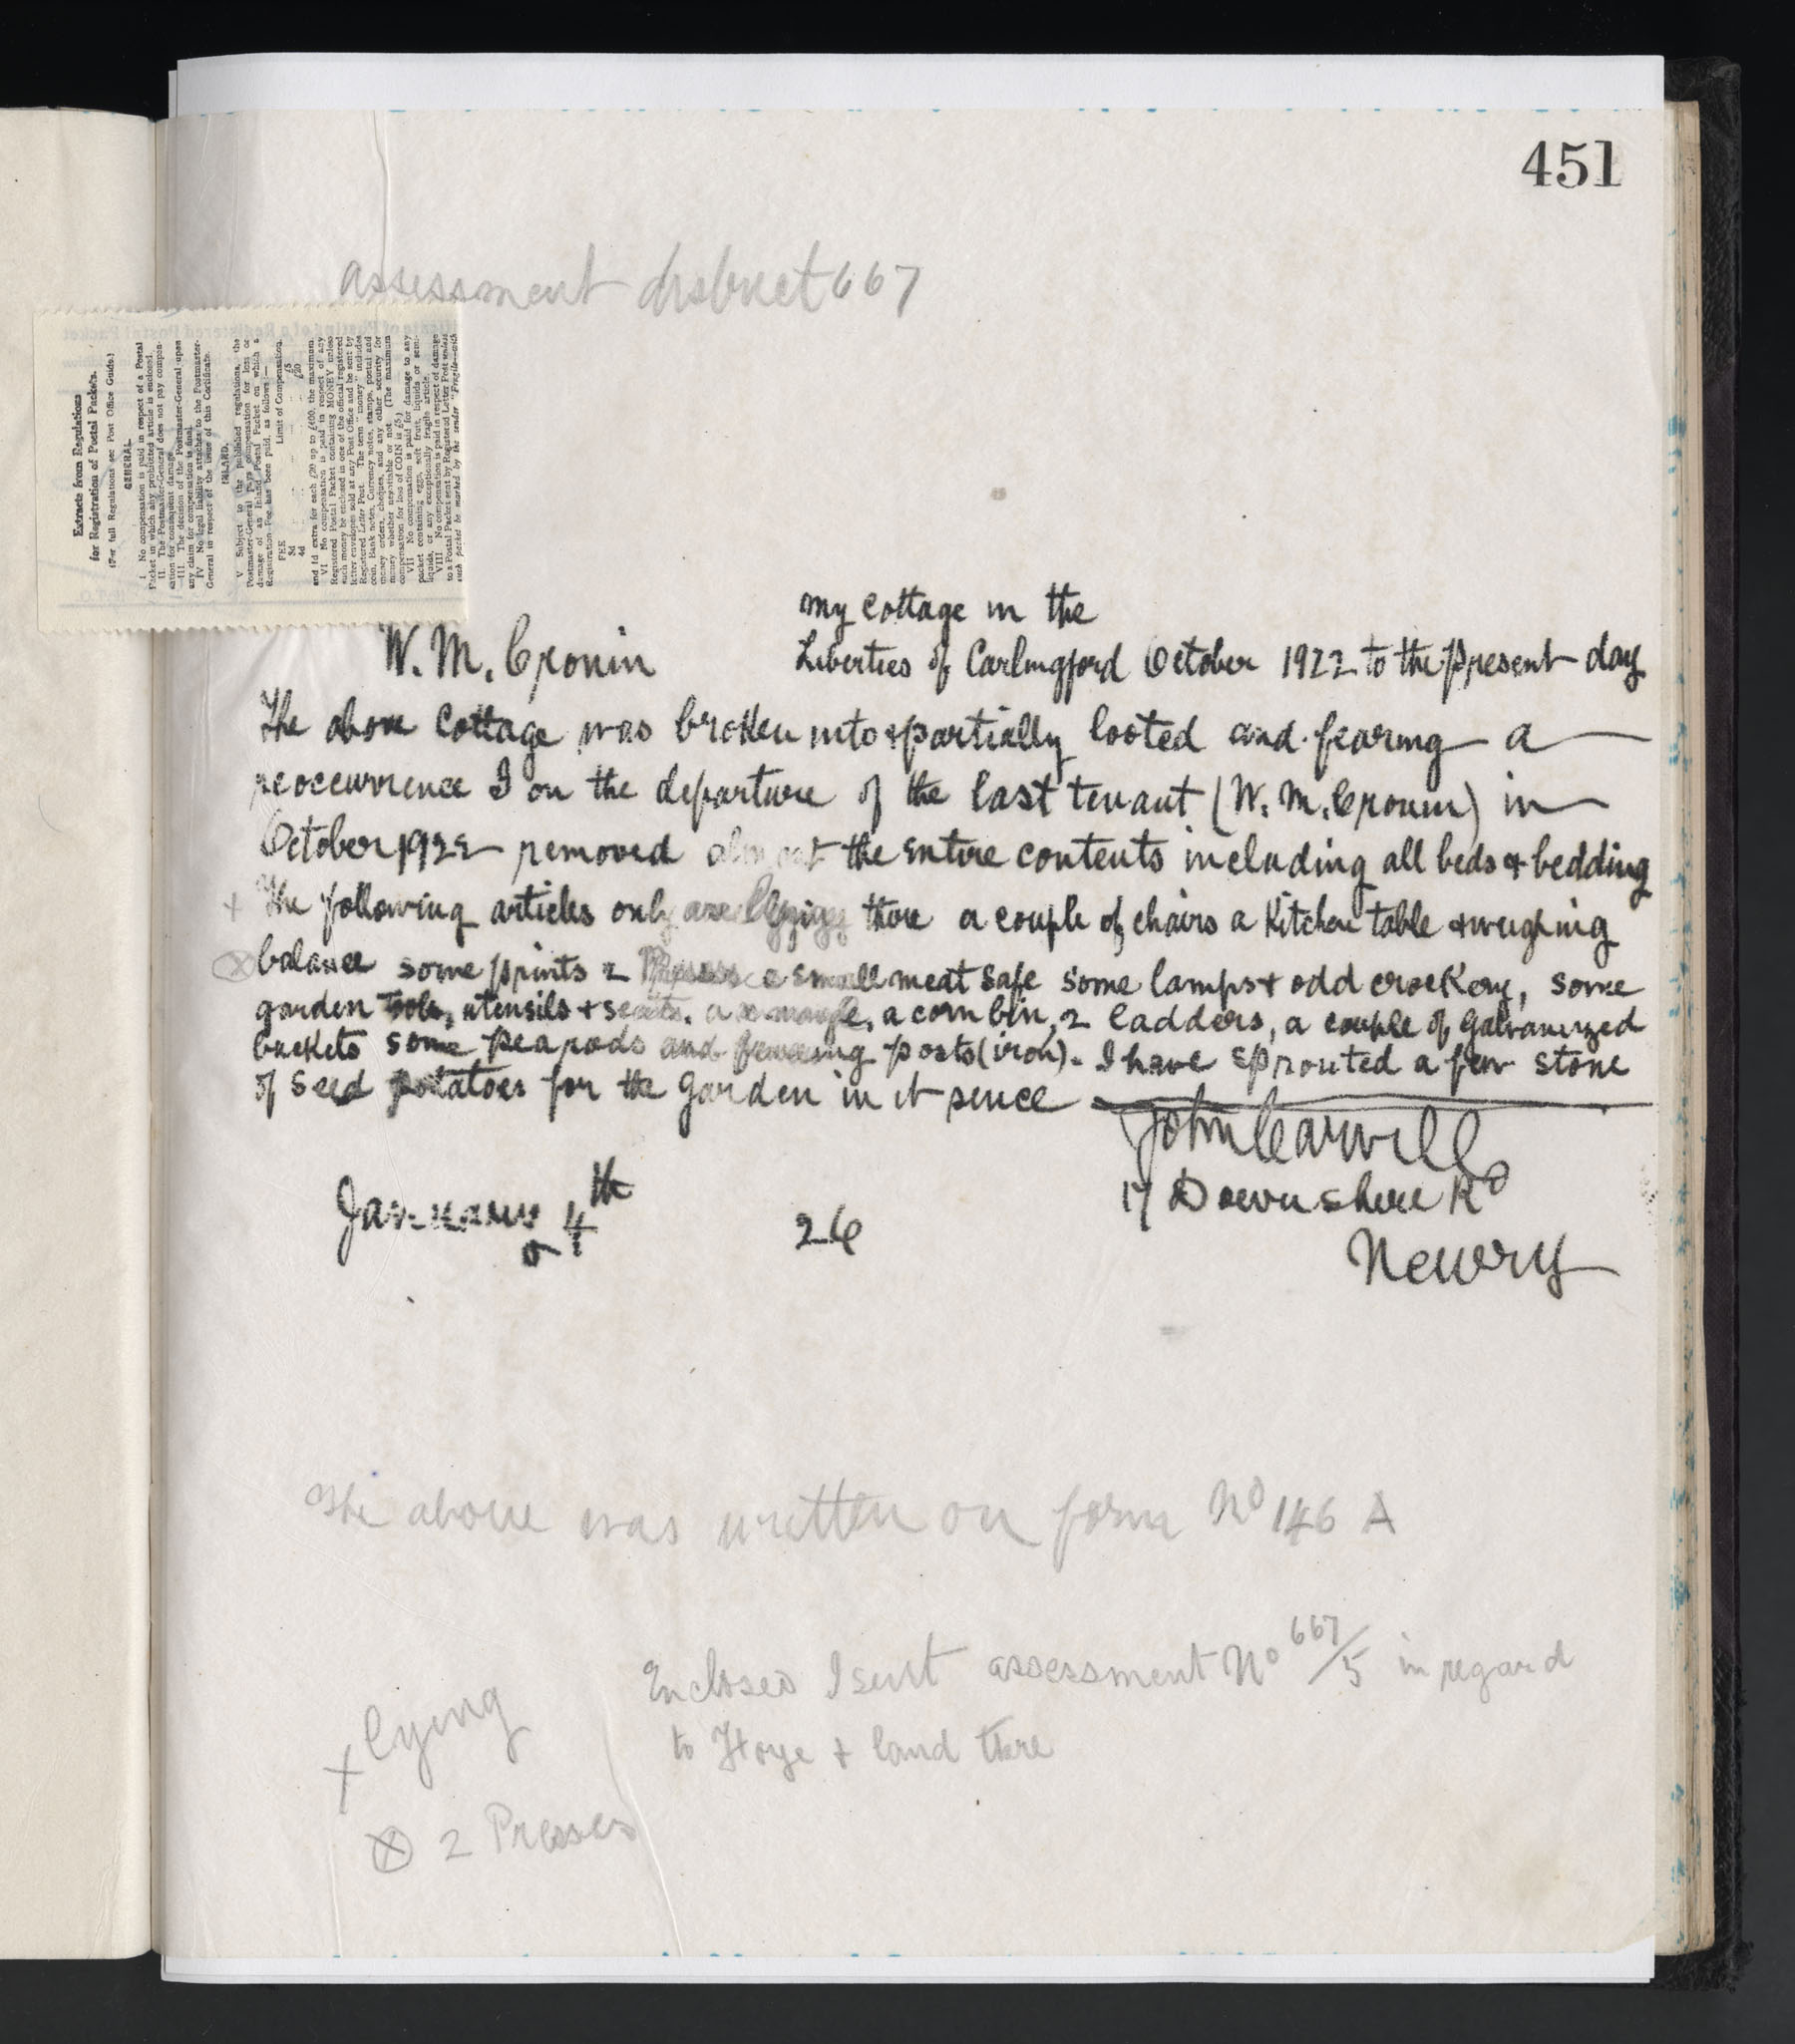 451
assessment district 667
Extracts from Regulations
for Registration of Postal Packets.
(For full Regulations see Post Office Guide.)
GENERAL
I No compensation is paid in respect of a Postal
Packet in which any prohibited article is enclosed.
II. The Postmaster-General does not pay compen-
sation for consequent damage.
III. The decision of the Postmaster-General upon
any claim for compensation is final.
IV No legal liability attaches to the Postmaster-
General in respect of the issue of this Certificate.
INLAND.
V Subject to the published regulations, the
Postmaster-General pays compensation for loss or
damage of an Inland Postal Packet on which a
Registration Fee has been paid, as follows:—
FEE Limit of Compensation.
3d £5
4d £20
and 1d extra for each £20 up to £400, the maximum.
VI No compensation is paid in respect of any
Registered Postal Packet containing MONEY unless
such money be enclosed in one of the official registered
letter envelopes sold at any Post Office and be sent by
Registered Letter Post. The term "money" includes
coin, Bank notes, Currency notes, stamps, postal and
money orders, cheques, and any other security for
money whether negotiable or not (The maximum
compensation for loss of COIN is £5)
VII No compensation is paid for damage to any
packet containing eggs, soft fruit, liquids, or semi-
liquids, or any exceptionally fragile article.
VIII No compensation is paid in respect of damage
to a Postal Packet sent by Registered Letter Post unless
such packet be marked by the sender "Fragile—with
my cottage in the
W. M. Cronin Liberties of Carlingford October 1922 to the present day
The above cottage was broken into + partially looted and fearing a
reoccurrence I on the departure of the last tenant (W. M. Cronin) in
October 1922 removed almost the entire contents including all beds + bedding
+ The following articles only are lying there a couple of chairs a Kitchen table + weighing
⊗ balance some prints 2 Presses a small meat safe some lamps + odd crockery, some
garden tools, utensils + seats. a mangle, a corn bin, 2 ladders, a couple of galvanized
buckets some pea rods and fencing posts (iron). I have sprouted a few stone
of seed potatoes for the garden in it since
John Carvill
17 Downshire Rd
January 4th 26
Newry
The above was written on form No 146 A
Enclosed I sent assessment No 667/5 in regard
to Hoye + land there
+ lying
⊗ 2 Presses